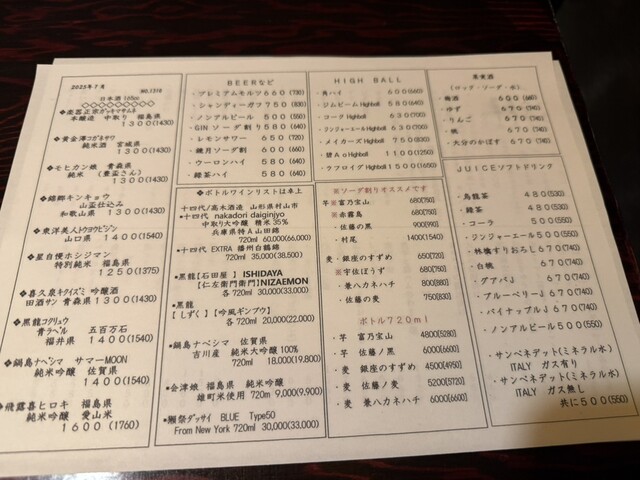 2025年7月 NO.1310
日本酒 165cc
◇◇◇◇◇◇◇◇◇
本醸造 中取り 福島県
1300(1430)
◆黄金澤コガネサワ
純米酒 宮城県
1300(1430)
◆モヒカン娘 青森県
純米 (豊盃さん)
1300(1430)
山並仕込み
和歌山県 1300(1430)
◆東洋美人トウヨウビジン
山口県 1400(1540)
◆星自慢ホシジマン
特別純米 福島県
1250(1375)
◆喜久泉キクイズミ 吟醸
田酒サン 青森県1300(1430)
◆黒龍コクリュウ
青ラベル 五百万石
福井県 1400(1540)
◆鍋島ナベシマ サマーMOON
純米吟醸 佐賀県
1400(1540)
◆飛露喜ヒロキ 福島県
純米吟醸 愛山米
1600(1760)
BEERなど
・プレミアムモルツ660(730)
・シャンディーガフ750(830)
・ノンアルビール 500(550)
・GINソーダ割り580(640)
・レモンサワー 650(720)
・鏡月ソーダ割 600(660)
・ウーロンハイ 580(640)
・緑茶ハイ 580(640)
◆ボトルワインリストは卓上
十四代/高木酒造 山形県村山市
・十四代 nakadori daiginjyo
中取り大吟醸 精米35%
兵庫県特A山田錦
720ml 60,000(66,000)
・十四代 EXTRA 播州白鶴錦
720ml 35,000(38,500)
◆黒龍【石田屋】 ISHIDAYA
【仁左衛門】NIZAEMON
各720ml 30,000(33.000)
◆黒龍
【しずく】【吟風ギンプウ】
各720ml 20,000(22,000)
◆鍋島ナベシマ 佐賀県
吉川産 純米大吟醸100%
720ml 18,000(19,800)
◆会津娘 福島県 純米吟醸
雄町米使用 720m 9,000(9,900)
◆獺祭ダッサイ BLUE Type50
From New York 720ml 30,000(33,000)
HIGH BALL
・角ハイ 600(660)
・ジムビームHighball 580(640)
・コークHighball 630(700)
・ジンジャーエールHighball 630(700)
・メイカーズ 750(830)
・碧Ao Highball 1100(1250)
・ラフロイグHighball 1500(1650)
※ソーダ割りオススメです
芋※富乃宝山 680[750]
※赤霧島 680[750]
・佐藤の黒 900[990]
・村尾 1400[1540]
麦・銀座のすずめ 650[720]
※宇佐ぼうず 680[750]
・兼八カネハチ 800[880]
・佐藤の麦 750[830]
ボトル720ml
・芋 富乃宝山 4800[5280]
・芋 佐藤ノ黒 6000[6600]
・麦 銀座のすずめ 4500[4950]
・麦 佐藤ノ麦 5200[5720]
・麦 兼八カネハチ 6000[6600]
果実酒
(ロック・ソーダ・水)
・梅酒 600(660)
・ゆず 670(740)
・りんご 670(740)
・桃 670(740)
・大分のかぼす 670(740)
JUICEソフトドリンク
・烏龍茶 480(530)
・緑茶 480(530)
・コーラ 500(550)
・ジンジャーエール500(550)
・林檎すりおろし670(740)
・白桃 670(740)
・グアバJ 670(740)
・ブルーベリーJ670(740)
・パイナップルJ670(740)
・ノンアルビール500(550)
・サンベネデット(ミネラル水)
ITALY ガス有り
・サンベネデット(ミネラル水)
ITALY ガス無し
共に500(550)